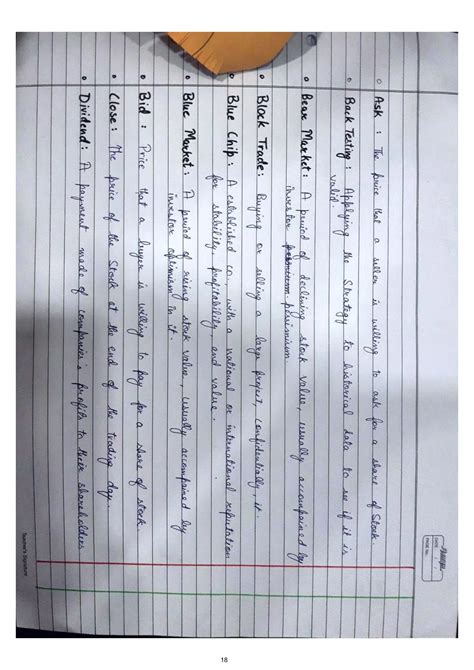 DATE: / /
PAGE No.
• Ask : The price that a seller is willing to ask for a share of Stock.
• Back Testing : Applying the Strategy to historical data to see if it is
valid.
• Bear Market : A period of declining stock value, usually accompained by
investor pessimism.
• Block Trade : Buying or selling a large project, confidentially, it.
• Blue Chip : A established co., with a national or international reputation
for stability, profitability and value.
• Blue Market : A period of rising stock value, usually accompained by
investor optimism in it.
• Bid : Price that a buyer is willing to pay for a share of stock.
• Close : The price of the Stock at the end of the trading day.
• Dividend : A payment made of companies's profits to their shareholders
Teacher's Signature
18